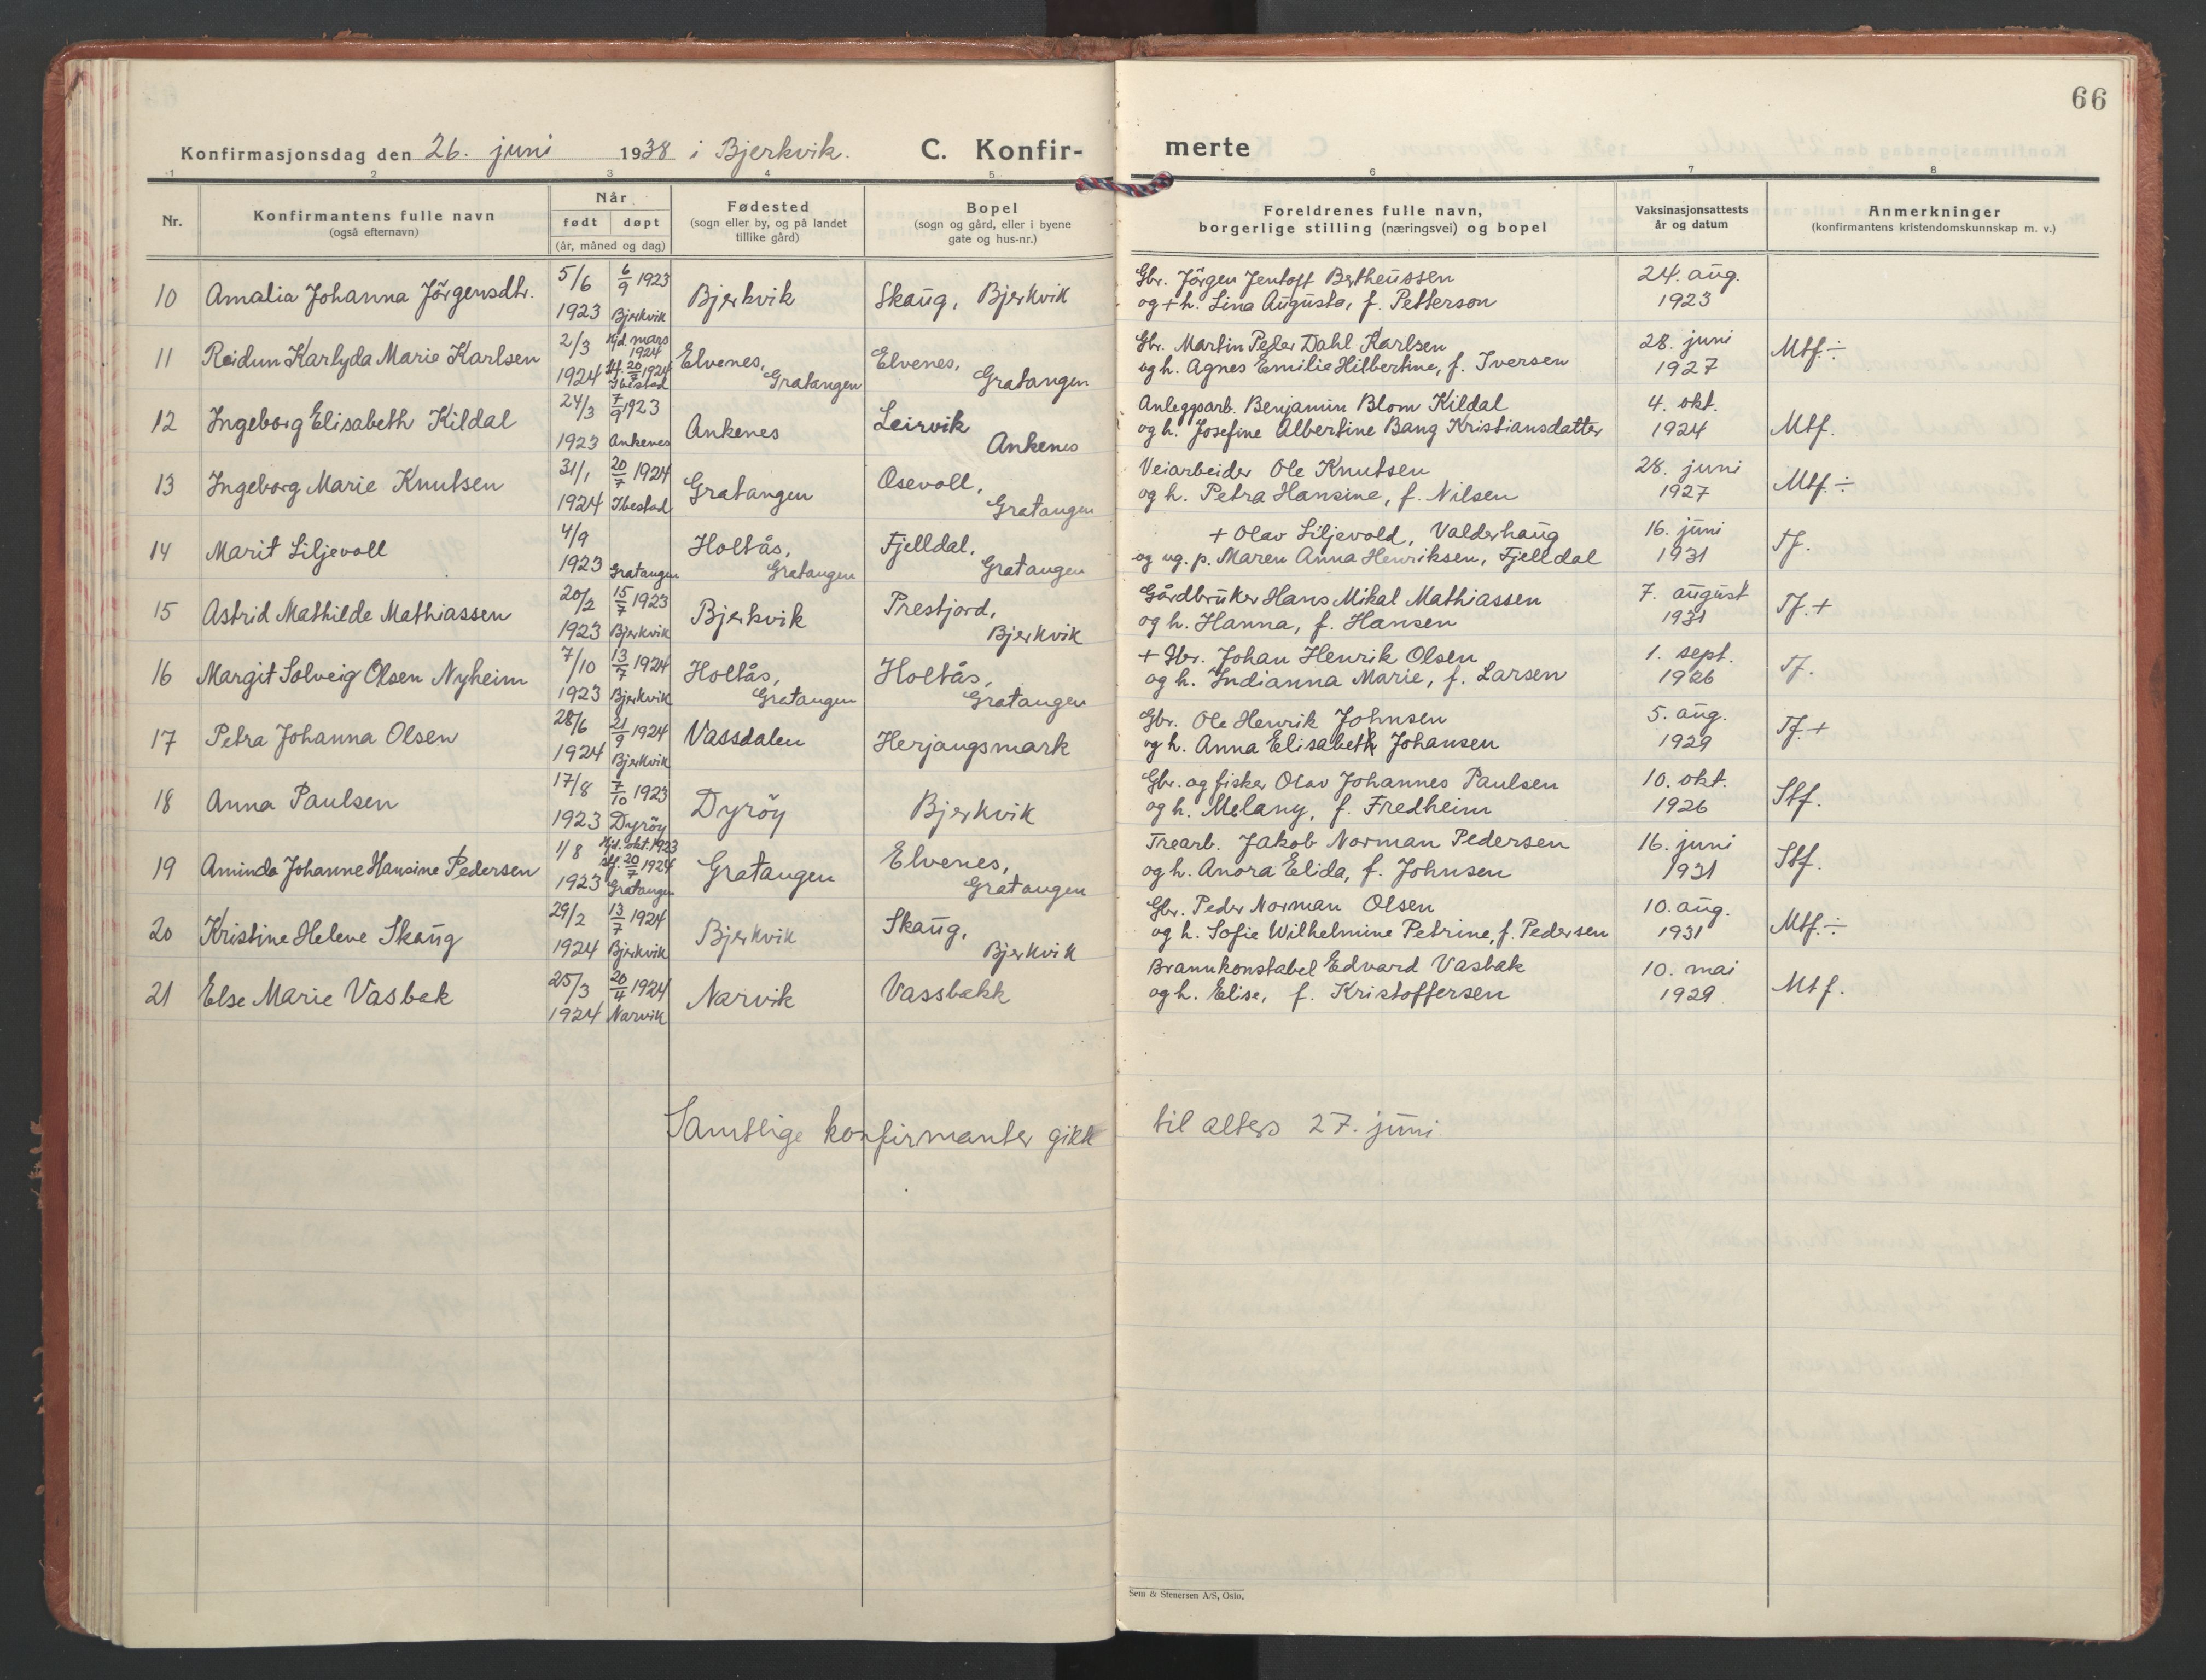 66
Konfirmasjonsdag den 26. juni 1938 i Bjerkvik. C. Konfirmerte
1 2 3 4 5 6 7 8
Nr. Konfirmantens fulle navn (også efternavn) Når født døpt (år, måned og dag) Fødested (sogn eller by, og på landet tillike gård) Bopel (sogn og gård, eller i byene gate og hus-nr.) Foreldrenes fulle navn, borgerlige stilling (næringsvei) og bopel Vaksinasjonsattests år og datum Anmerkninger (konfirmantens kristendomskunnskap m. v.)
10 Amalia Johanna Jörgensdtr. 5/6 1923 6/9 1923 Bjerkvik Bjerkvik Skaug, Bjerkvik Gbr. Jörgen Jentoft Bertheussen og + h. Lina Augusta, f. Petterson 24. aug. 1923
11 Reidun Karlyda Marie Karlsen 2/3 1924 Hjd. mars 1924 Stf. 20/7 1924 Ibestad Elvenes, Gratangen Elvenes, Gratangen Gbr. Martin Peder Dahl Karlsen og h. Agnes Emilie Hilbertine, f. Iversen 28. juni 1927 Mtf. ÷
12 Ingeborg Elisabeth Kildal 24/3 1923 7/9 1923 Ankenes Ankenes Leirvik Ankenes Anleggsarb. Benjamin Blom Kildal og h. Josefine Albertine Bang Kristiansdatter 4. okt. 1924 Mtf.
13 Ingeborg Marie Knutsen 31/1 1924 20/7 1924 Ibestad Gratangen Osevoll, Gratangen Veiarbeider Ole Knutsen og h. Petra Hansine, f. Nilsen 28. juni 1927 Mtf. ÷
14 Marit Liljevoll 4/9 1923 Gratangen Holtås, Gratangen Fjelldal, Gratangen + Olav Liljevold, Valderhaug og ug. p. Maren Anna Henriksen, Fjelldal 16. juni 1931 Tf.
15 Astrid Mathilde Mathiassen 20/2 1923 15/7 1923 Bjerkvik Bjerkvik Prestjord, Bjerkvik Gårdbruker Hans Mikal Mathiassen og h. Hanna, f. Hansen 7. august 1931 Tf. +
16 Margit Solveig Olsen Nyheim 7/10 1923 13/7 1924 Bjerkvik Holtås, Gratangen Holtås, Gratangen + Gbr. Johan Henrik Olsen og h. Indianna Marie, f. Larsen 1. sept. 1926 Tf.
17 Petra Johanna Olsen 28/6 1924 21/9 1924 Bjerkvik Vassdalen Herjangsmark Gbr. Ole Henrik Johnsen og h. Anna Elisabeth Johansen 5. aug. 1929 Tf. +
18 Anna Paulsen 17/8 1923 7/10 1923 Dyröy Dyröy Bjerkvik Gbr. og fisker Olav Johannes Paulsen og h. Melany, f. Fredheim 10. okt. 1926 Stf.
19 Aminda Johanne Hansine Pedersen 1/8 1923 Hjd. okt. 1923 Stf. 20/7 1924 Gratangen Gratangen Elvenes, Gratangen Trearb. Jakob Norman Pedersen og h. Anora Elida, f. Johnsen 16. juni 1931 Stf.
20 Kristine Helene Skaug 29/2 1924 13/7 1924 Bjerkvik Bjerkvik Skaug, Bjerkvik Gbr. Peder Norman Olsen og h. Sofie Wilhelmine Petrine, f. Pedersen 10. aug. 1931 Mtf. ÷
21 Else Marie Vasbak 25/3 1924 20/4 1924 Narvik Narvik Vassbakk Brannkonstabel Edvard Vasbak og h. Elise, f. Kristoffersen 10. mai 1929 Mtf.
Samtlige konfirmanter gikk til alters 27. juni
Sem & Stenersen A/S, Oslo.